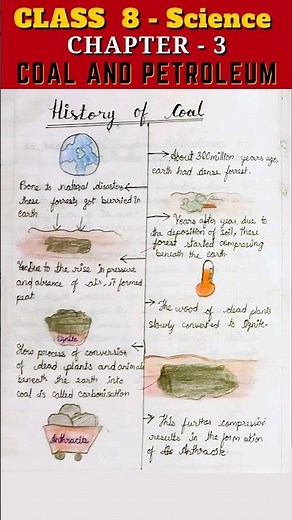 CLASS 8 - Science
CHAPTER - 3
COAL AND PETROLEUM
History of Coal
About 300 million years ago,
earth had dense forest.
Prone to natural disasters
these forests got burried in
earth
Years after year, due to
the deposition of soil, these
forest started compressing
beneath the earth
Due to the rise in pressure
and absence of air, it formed
peat
The wood of dead plants
slowly converted to lignite.
lignite
process of conversion
of dead plants and animals
beneath the earth into
coal is called carbonisation
This further compression
results in the formation
of Anthracite.
Anthracite